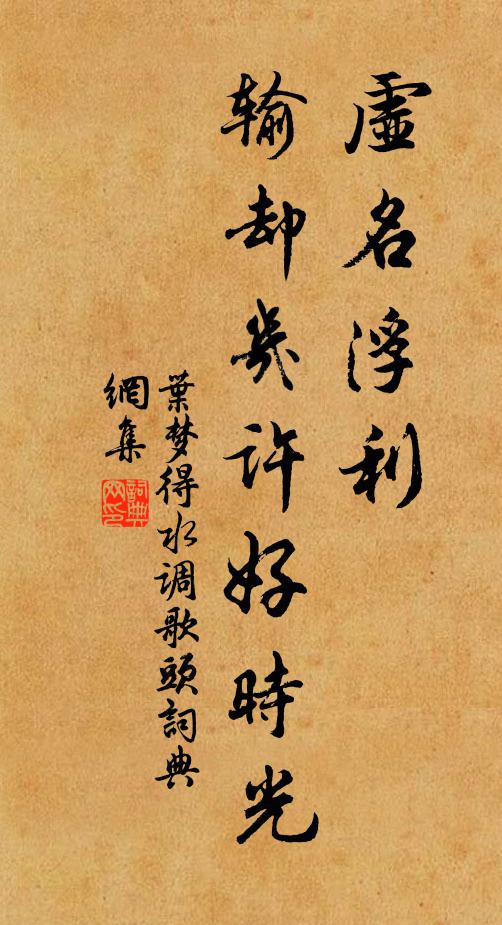 虛名浮利
輸却幾許好時光
葉梦得水调歌頭詞典
網集
詞典
网印